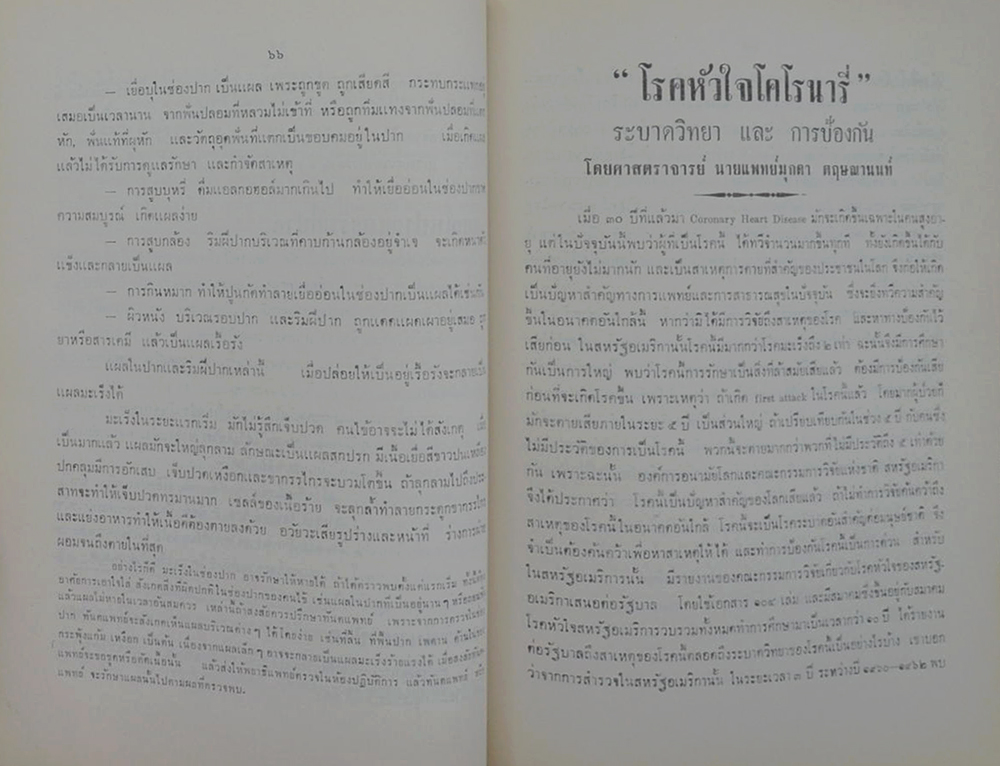 ๖๖
— เยื่อบุในช่องปาก เป็นแผล เพราะถูกขูด ถูกเสียดสี กระทบกระแทก
เสมอเป็นเวลานาน จากฟันปลอมที่หลวมไม่เข้าที่ หรือถูกทิ่มแทงจากฟันปลอมที่
หัก, ฟันแท้ที่ผุหัก และวัตถุอุดฟันที่แตกเป็นขอบคมอยู่ในปาก เมื่อเกิด
แล้วไม่ได้รับการดูแลรักษา และกำจัดสาเหตุ
— การสูบบุหรี่ ดื่มแอลกอฮอล์มากเกินไป ทำให้เยื่ออ่อนในช่องปาก
ความสมบูรณ์ เกิดแผลง่าย
— การสูบกล้อง ริมฝีปากบริเวณที่คาบก้านกล้องอยู่จำเจ จะเกิด
แข็งและกลายเป็นแผล
— การกินหมาก ทำให้ปูนกัดทำลายเยื่ออ่อนในช่องปากเป็นแผลได้เช่นกัน
— ผิวหนัง บริเวณรอบปาก และริมฝีปาก ถูกแดดแผดเผาอยู่เสมอ
ยาหรือสารเคมี แล้วเป็นแผลเรื้อรัง
แผลในปากและริมฝีปากเหล่านี้ เมื่อปล่อยให้เป็นอยู่เรื้อรังจะกลายเป็น
แผลมะเร็งได้
มะเร็งในระยะแรกเริ่ม มักไม่รู้สึกเจ็บปวด คนไข้อาจจะไม่ได้สังเกต เมื่อ
เป็นมากแล้ว แผลมักจะใหญ่ลุกลาม ลักษณะเป็นแผลสกปรก มีเนื้อเยื่อสีขาวปนเหลือง
ปกคลุมมีการอักเสบ เจ็บปวดเหงือกและขากรรไกรจะบวมโตขึ้น ถ้าลุกลามไปถึงประ
สาทจะทำให้เจ็บปวดทรมานมาก เซลล์ของเนื้อร้าย จะลุกล้ำทำลายกระดูกขากรรไกร
และแย่งอาหารทำให้เนื้อดีต้องตายลงด้วย อวัยวะเสียรูปร่างและหน้าที่ ร่างกาย
ผอมจนถึงตายในที่สุด
อย่างไรก็ดี มะเร็งในช่องปาก อาจรักษาให้หายได้ ถ้าได้ตรวจพบตั้งแต่แรกเริ่ม
ยาคือการเอาใจใส่ สังเกตสิ่งที่ผิดปกติในช่องปากของคนไข้ เช่นแผลในปากที่เป็นอยู่นาน ๆ หรือ
แล้วแผลไม่หายในเวลาอันสมควร เหล่านี้ถ้าสงสัยควรปรึกษาทันตแพทย์ เพราะจากการตรวจ
ปาก ทันตแพทย์จะสังเกตเห็นแผลบริเวณต่าง ๆ ได้โดยง่าย เช่นที่ลิ้น ที่พื้นปาก เพดาน
กระพุ้งแก้ม เหงือก เป็นต้น เนื่องจากแผลเล็ก ๆ อาจจะกลายเป็นแผลมะเร็งร้ายแรงได้ เมื่อสงสัย
แพทย์จะขอขูดหรือตัดเนื้อนั้น แล้วส่งให้พยาธิแพทย์ตรวจในห้องปฏิบัติการ แล้วทันตแพทย์
แพทย์ จะรักษาแผลนั้นไปตามผลที่ตรวจพบ.
“ โรคหัวใจโคโรนารี่ ”
ระบาดวิทยา และ การป้องกัน
โดยศาสตราจารย์ นายแพทย์มุกดา ตฤษณานนท์
เมื่อ ๓๐ ปีที่แล้วมา Coronary Heart Disease มักจะเกิดขึ้นเฉพาะในคนสูงอา-
ยุ แต่ในปัจจุบันนี้พบว่าผู้ที่เป็นโรคนี้ ได้ทวีจำนวนมากขึ้นทุกที ทั้งยังเกิดขึ้นได้กับ
คนที่อายุยังไม่มากนัก และเป็นสาเหตุการตายที่สำคัญของประชาชนในโลก จึงก่อให้เกิด
เป็นปัญหาสำคัญทางการแพทย์และการสาธารณสุขในปัจจุบัน ซึ่งจะยิ่งทวีความสำคัญ
ขึ้นในอนาคตอันใกล้นี้ หากว่ามิได้มีการวิจัยถึงสาเหตุของโรค และหาทางป้องกันไว้
เสียก่อน ในสหรัฐอเมริกานั้นโรคนี้มีมากกว่าโรคมะเร็งถึง ๒ เท่า ฉะนั้นจึงมีการศึกษา
กันเป็นการใหญ่ พบว่าโรคนี้การรักษาเป็นสิ่งที่ล้าสมัยเสียแล้ว ต้องมีการป้องกันเสีย
ก่อนที่จะเกิดโรคขึ้น เพราะเหตุว่า ถ้าเกิด first attack ในโรคนี้แล้ว โดยมากผู้ป่วยก็
มักจะตายเสียภายในระยะ ๕ ปี เป็นส่วนใหญ่ ถ้าเปรียบเทียบกันในช่วง ๕ ปี กับคนซึ่ง
ไม่มีประวัติของการเป็นโรคนี้ พวกนี้จะตายมากกว่าพวกที่ไม่มีประวัติถึง ๕ เท่าด้วย
กัน เพราะฉะนั้น องค์การอนามัยโลกและคณะกรรมการวิจัยแห่งชาติ สหรัฐอเมริกา
จึงได้ประกาศว่า โรคนี้เป็นปัญหาสำคัญของโลกเสียแล้ว ถ้าไม่ทำการวิจัยค้นคว้าถึง
สาเหตุของโรคนี้ในอนาคตอันใกล้ โรคนี้จะเป็นโรคระบาดอันสำคัญต่อมนุษย์ชาติ จึง
จำเป็นต้องค้นคว้าเพื่อหาสาเหตุให้ได้ และทำการป้องกันโรคนี้เป็นการด่วน สำหรับ
ในสหรัฐอเมริการนั้น มีรายงานของคณะกรรมการวิจัยเกี่ยวกับโรคหัวใจของสหรัฐ-
อเมริกาเสนอต่อรัฐบาล โดยใช้เอกสาร ๑๐๔ เล่ม และมีสมาคมซึ่งขึ้นอยู่กับสมาคม
โรคหัวใจสหรัฐอเมริการวบรวมทั้งหมดทำการศึกษามาเป็นเวลากว่า ๑๐ ปี ได้รายงาน
ต่อรัฐบาลถึงสาเหตุของโรคนี้ตลอดถึงระบาดวิทยาของโรคนี้เป็นอย่างไรบ้าง เขาบอก
ว่าจากการสำรวจในสหรัฐอเมริกานั้น ในระยะเวลา ๓ ปี ระหว่างปี ๑๙๖๐—๑๙๖๒ พบ